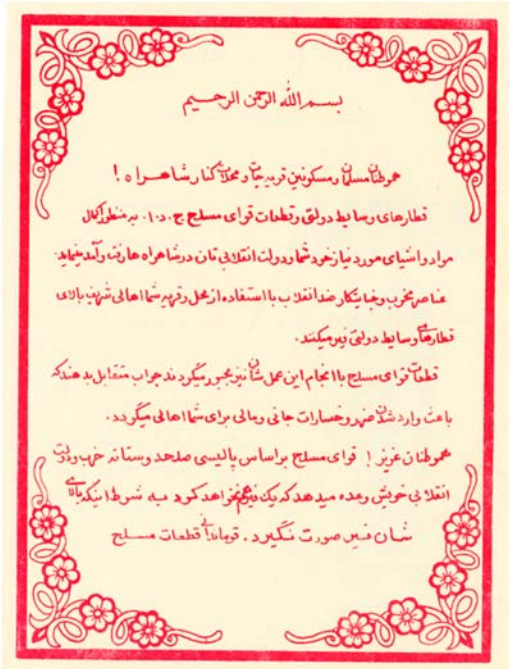 بسم الله الرحمن الرحیم
هموطنان مسلمان و مسکونین قریه جات و محلات کنار شاهراه!
قطارهای وسایط دولتی و قطعات قوای مسلح ج.د.ا. به منظور اکمال
مواد و اشیای مورد نیاز خود شما و دولت انقلابی تان در شاهراه ها رفت و آمد مینماید.
عناصر مخرب و جنایتکار ضد انقلاب با استفاده از محل و قریه شما اهالی شریف بالای
قطارهای وسایط دولتی فیر میکنند.
قطعات قوای مسلح با انجام این عمل شان نیز مجبور میگردند جواب متقابل بدهند که
باعث وارد شدن ضرر و خسارات جانی و مالی برای شما اهالی میگردد.
هموطنان عزیز! قوای مسلح بر اساس پالیسی صلحدوستانه حزب و دولت
انقلابی خویش وعده میدهد که یک فیر هم نخواهد کرد به شرط اینکه بالای
شان فیر صورت نگیرد. قوماندانی قطعات مسلح